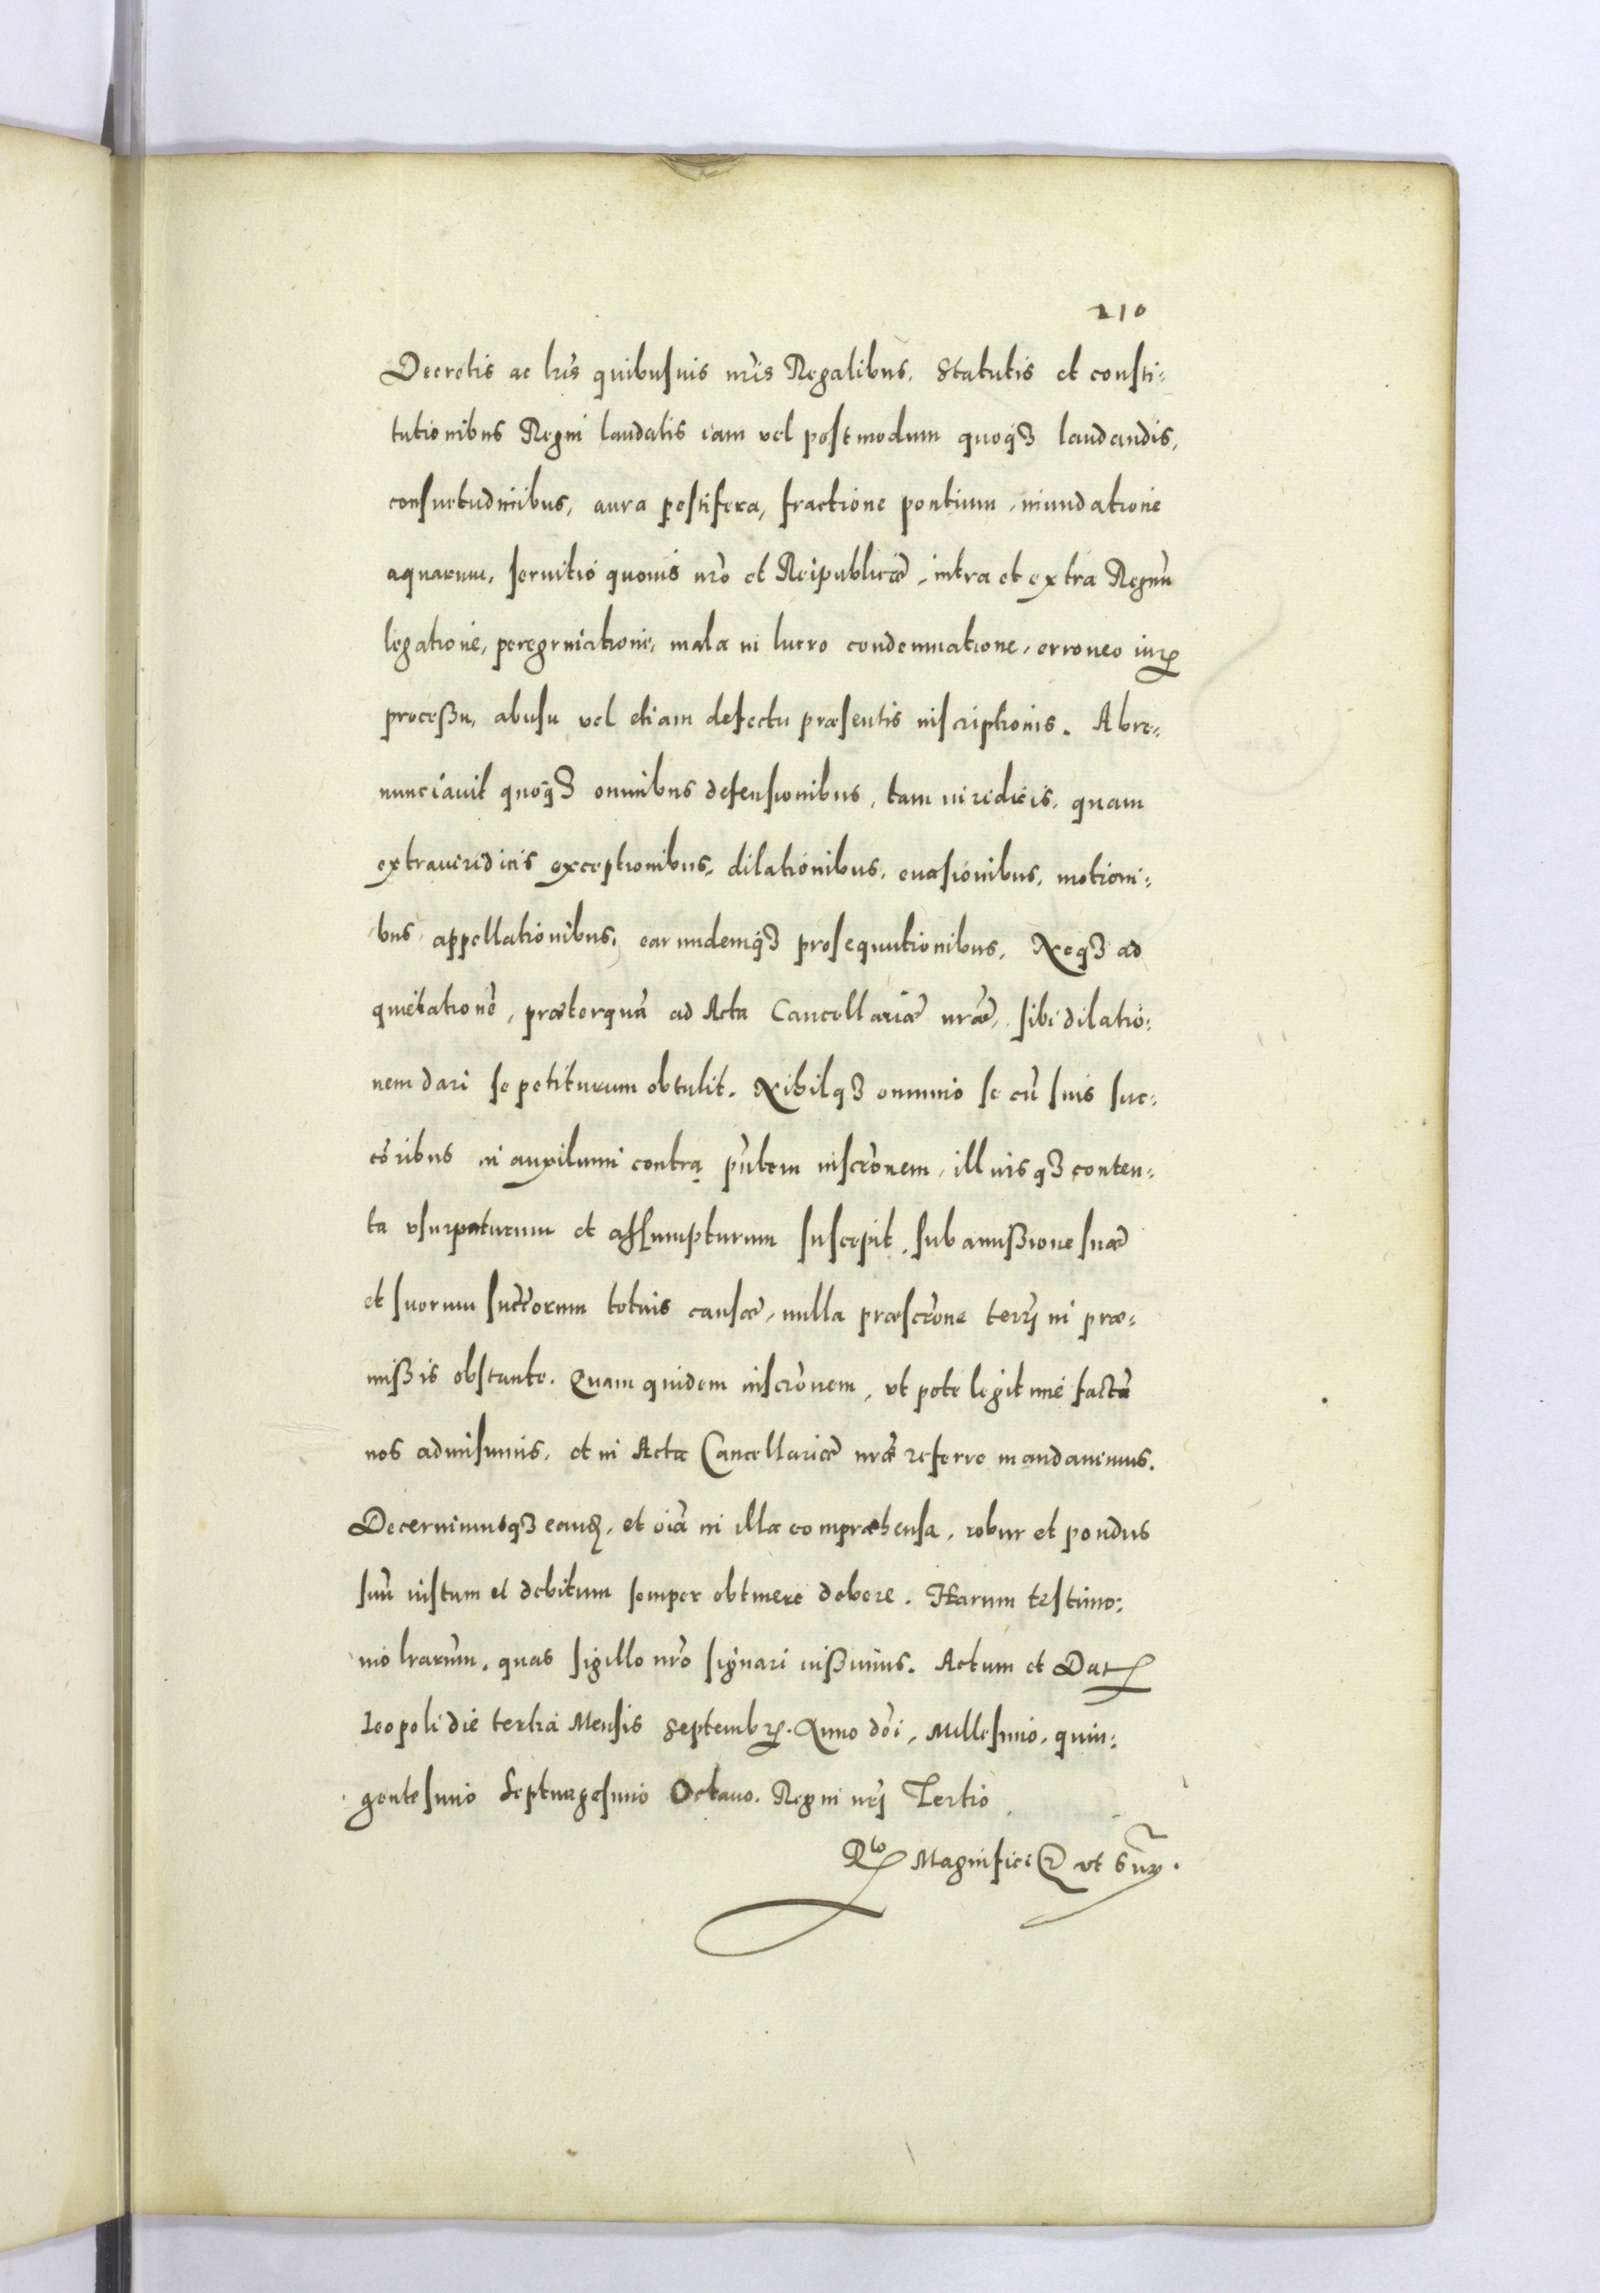 210
Decretis ac lris quibusuis nris Regalibus, Statutis et consti:
tutionibus Regni laudatis iam vel postmodum quoq3 laudandis,
consuetudinibus, aura pestifera, fractione pontium, inundatione
aquarum, seruitio quouis nro et Reipublicæ, intra et extra Regnũ
legatione, peregrinatione, mala in lucro condemnatione, erroneo iur
processu, abusu vel etiam defectu præsentis inscriptionis. Abre:
nunciauit quoq3 omnibus defensionibus, tam iuridicis, quam
extraiuridicis exceptionibus, dilationibus, euasionibus, motioni:
bus appellationibus, earundemq3 prosequutionibus, Neq3 ad
quietationẽ, præterquã ad Acta Cancellariæ nræ, sibi dilatio:
nem dari se petiturum obtulit. Nihilq3 omnino se cũ suis suc:
cõribus in auxilium contra pñtem inscrõnem, illiusq3 conten:
ta vsurpaturum et assumpturum suscepit, sub amißione suæ
et suorum succõrum totius causæ, nulla præscrõne terrj in præ:
mißis obstante. Quam quidem inscrõnem, vt pote legitimè factã
nos admisimus, et in Acta Cancellariæ nræ referre mandauimus.
Decernimusq3 eand, et oĩa in illa compræhensa, robur et pondus
suũ iustum et debitum semper obtinere debere. Harum testimo:
nio lrarum, quas sigillo nro signari iußimus. Actum et Dat
Leopoli die tertia Mensis Septembr. Anno dõi, Millesimo, quin:
gentesimo Septuagesimo Octauo. Regni nrj Tertio
Rlo Magnifici et vt supr.